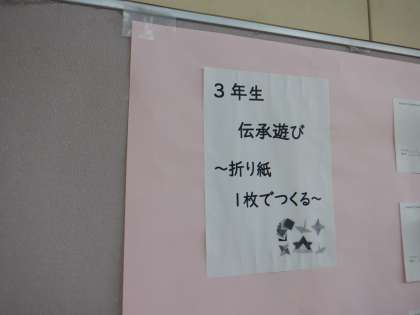 3年生
伝承遊び
～折り紙
1枚でつくる～